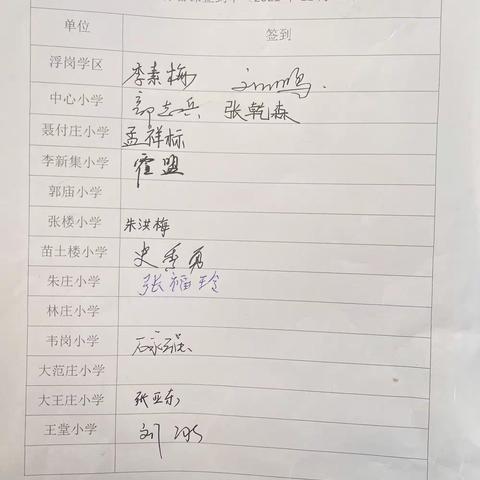 单位 签到
浮岗学区 李素梅
中心小学 郭志兵 张乾森
聂付庄小学 孟祥标
李新集小学 霍盟
郭庙小学
张楼小学 朱洪梅
苗土楼小学 史秀勇
朱庄小学 张福玲
林庄小学
韦岗小学
大范庄小学
大王庄小学 张亚东
王堂小学 刘